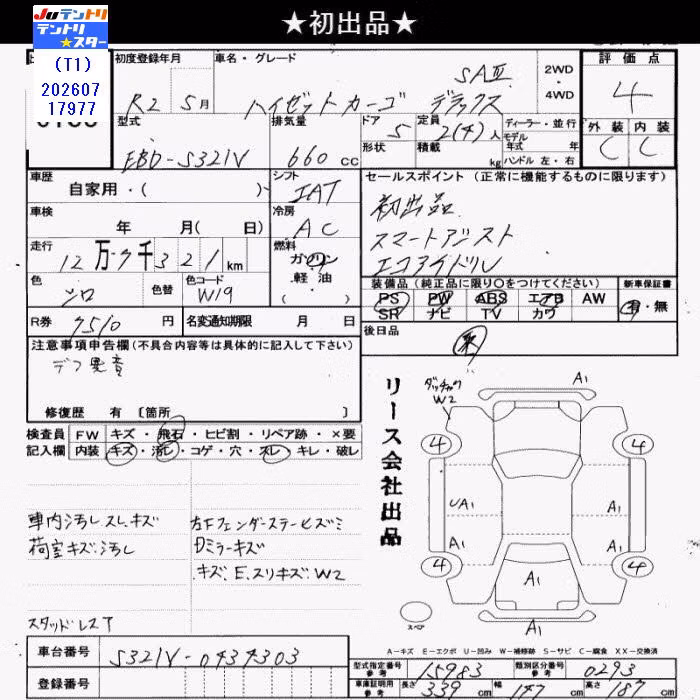 ★初出品★
JUテントリ
テントリ
★スター
(T1)
202607
17977
初度登録年月
R2 5月
車名・グレード
SAⅢ
ハイゼットカーゴ デラックス
2WD
4WD
評価点
4
外装 内装
C C
型式
EBD-S321V
排気量
660 cc
ドア 5
形状
定員 2(4)人
積載 kg
ディーラー・並行
モデル
年式 年
ハンドル 左・右
車歴
自家用・( )
シフト
IAT
車検
年 月( 日)
冷房
AC
走行
12万7千321km
燃料
ガソリン
軽油
( )
色
シロ
色替
色コード
W19
R券 7510円
名変通知期限 月 日
セールスポイント (正常に機能するものに限ります)
初出品
スマートアシスト
エコアイドル
装備品(純正品に限り○をつけてください)
新車保証書
PS PW ABS エアB AW
SR ナビ TV カワ
有・無
後日品
注意事項申告欄(不具合内容等は具体的に記入して下さい)
デフ異音
修復歴 有 〔箇所 〕
検査員
記入欄
FW キズ・飛石・ヒビ割・リペア跡・×要
内装 キズ・汚レ・コゲ・穴・スレ・キレ・破レ
車内汚レスレキズ
荷室キズ汚レ
左Fフェンダーステーヒズミ
Dミラーキズ
キズ、E、スリキズ、W2
スタッドレスア
リース会社出品
W2
A1
4 4
UA1
A1
A1
A1
4 4
A1
A1
スペア
A-キズ E-エクボ U-凹み W-補修跡 S-サビ C-腐食 XX-交換済
車台番号
S321V-0434303
登録番号
型式指定番号
参考
15983
類別区分番号
参考
0293
車庫証明用
参考
長さ 339 cm 幅 147 cm 高さ 187 cm